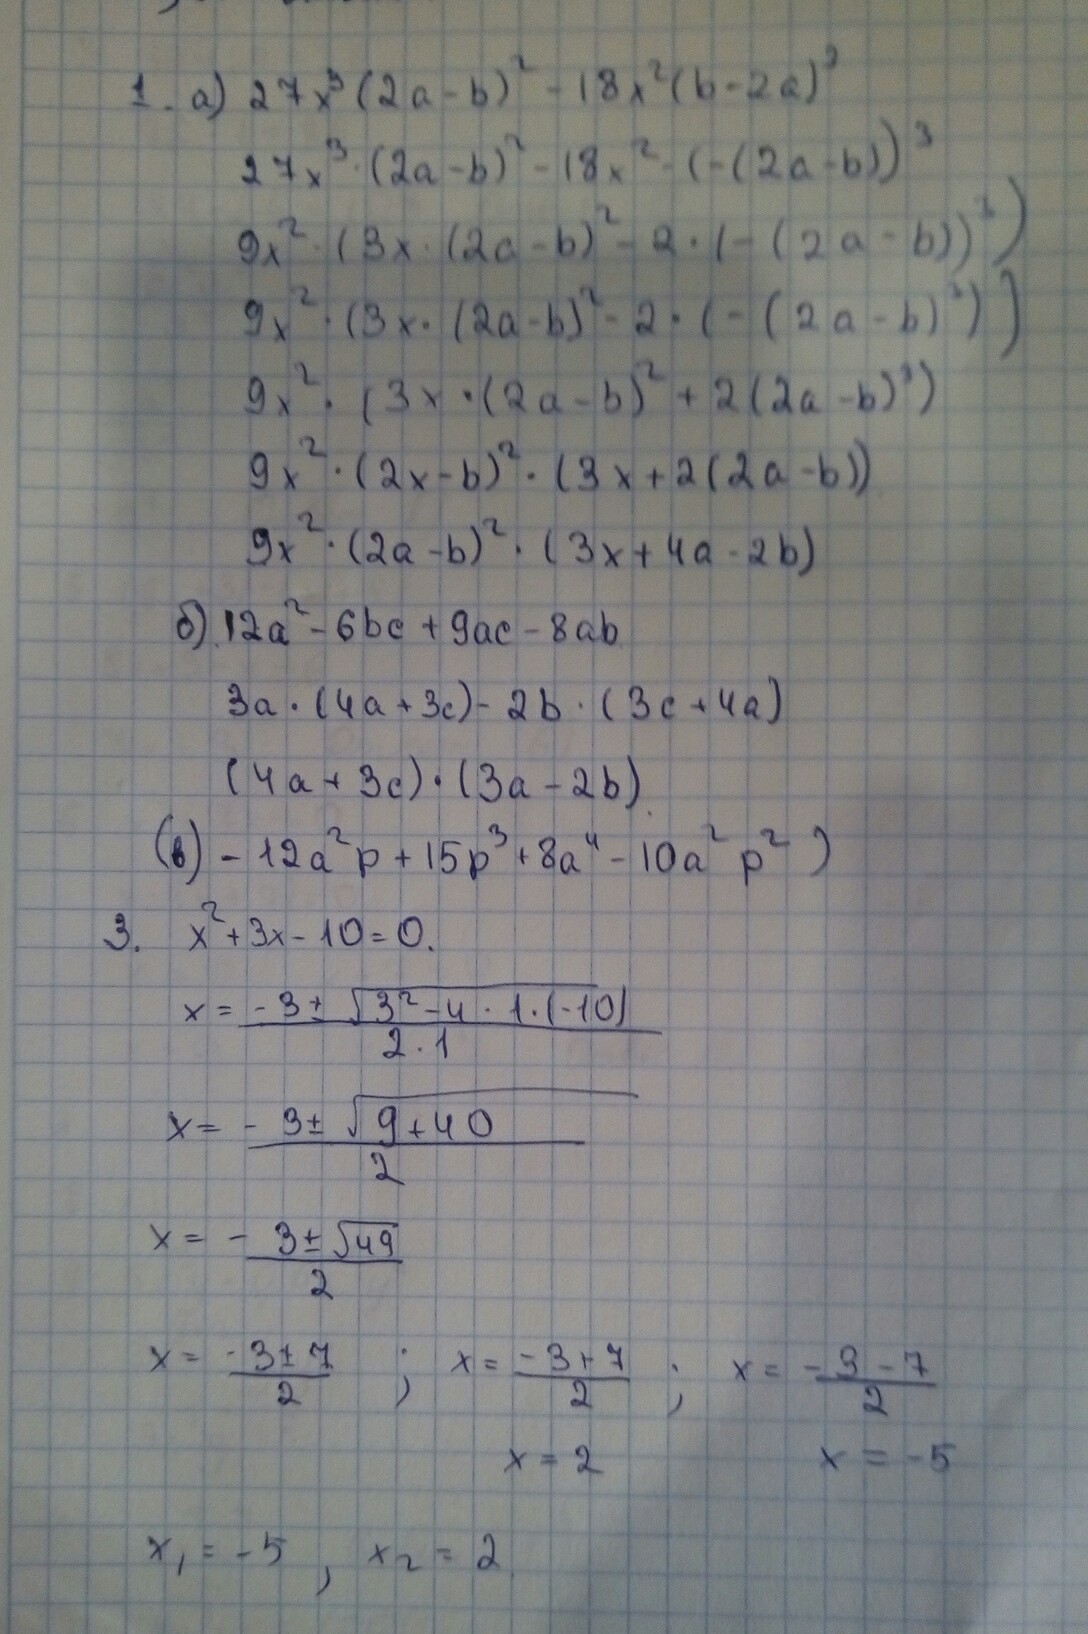 1. а) 27x³(2a-b)² - 18x²(b-2a)³
27x³·(2a-b)² - 18x²·(-(2a-b))³
9x²·(3x·(2a-b)² - 2·(-(2a-b))³)
9x²·(3x·(2a-b)² - 2·(-(2a-b)³))
9x²·(3x·(2a-b)² + 2(2a-b)³)
9x²·(2x-b)²·(3x+2(2a-b))
9x²·(2a-b)²·(3x+4a-2b)
б) 12a² - 6bc + 9ac - 8ab
3a·(4a+3c) - 2b·(3c+4a)
(4a+3c)·(3a-2b)
(в) - 12a²p + 15p³ + 8a⁴ - 10a²p²)
3. x² + 3x - 10 = 0.
x = (-3 ± √(3² - 4·1·(-10))) / (2·1)
x = (-3 ± √(9+40)) / 2
x = (-3 ± √49) / 2
x = (-3 ± 7) / 2 ; x = (-3 + 7) / 2 ; x = (-3 - 7) / 2
x = 2 x = -5
x₁ = -5, x₂ = 2